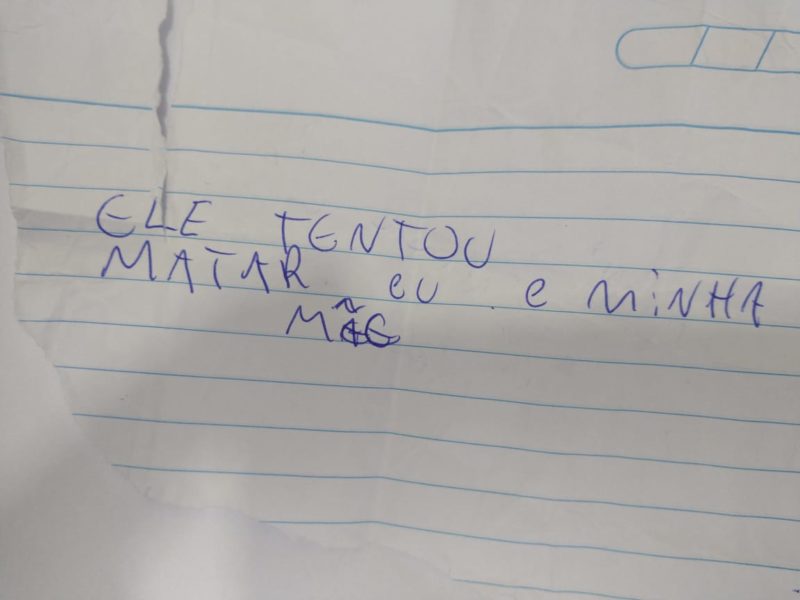 ELE TENTOU
MATAR eU e MiNHA
MÃE